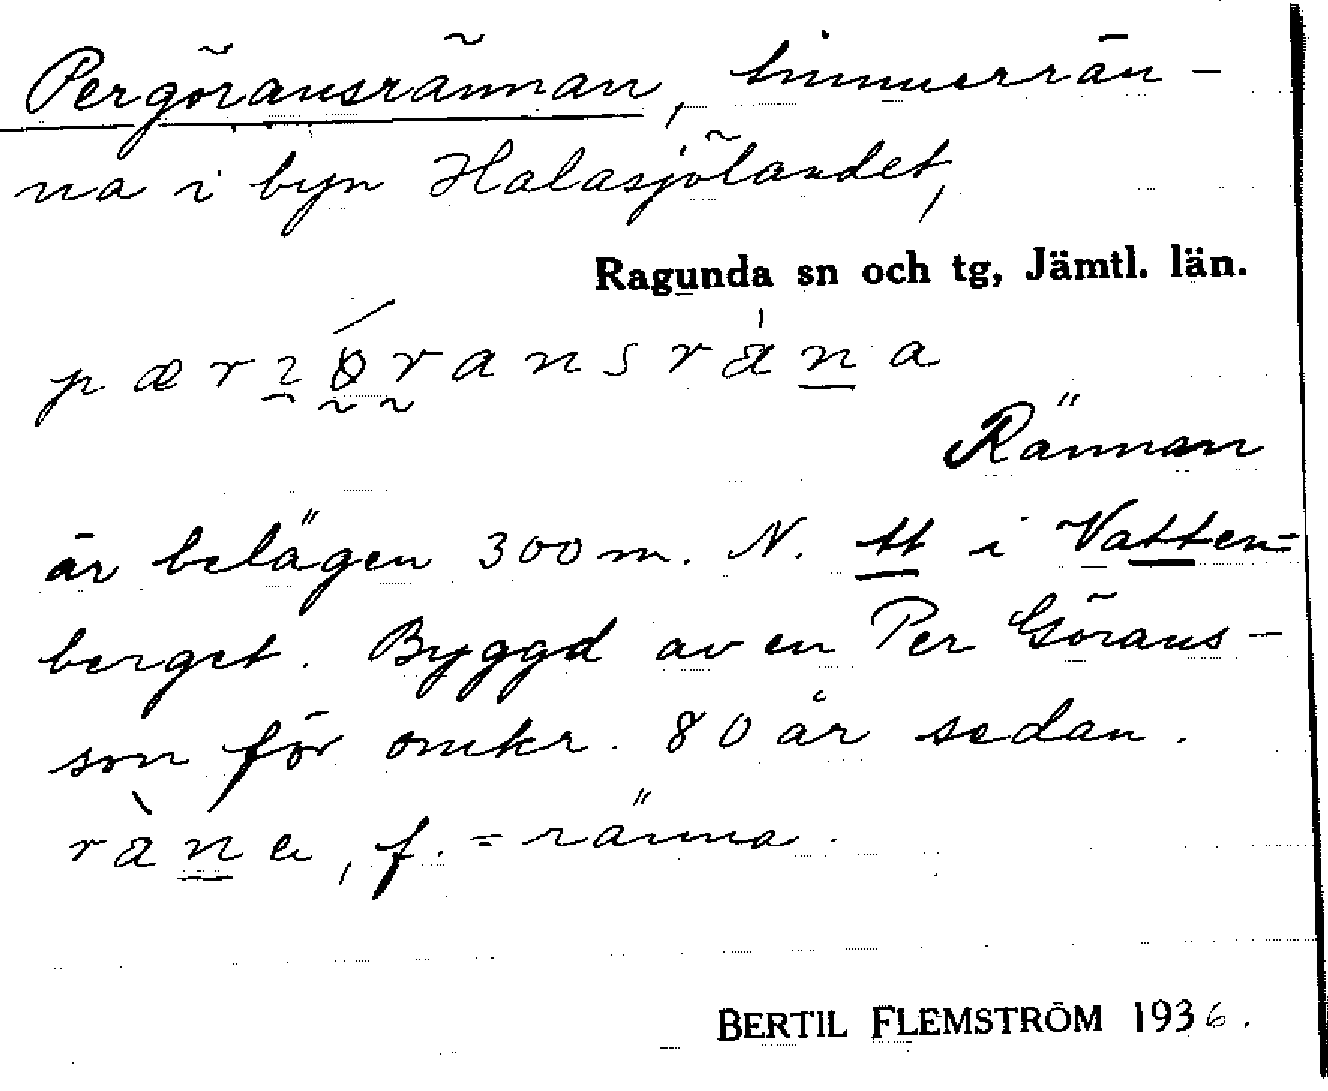 Pergöransrännan, timmerrän-
na i byn Halasjölandet,
Ragunda sn och tg, Jämtl. län.
Rännan
är belägen 300 m. N. tt i Vatten-
berget. Byggd av en Per Görans-
son för omkr. 80 år sedan.
f. = ränna.
BERTIL FLEMSTRÖM 1936.